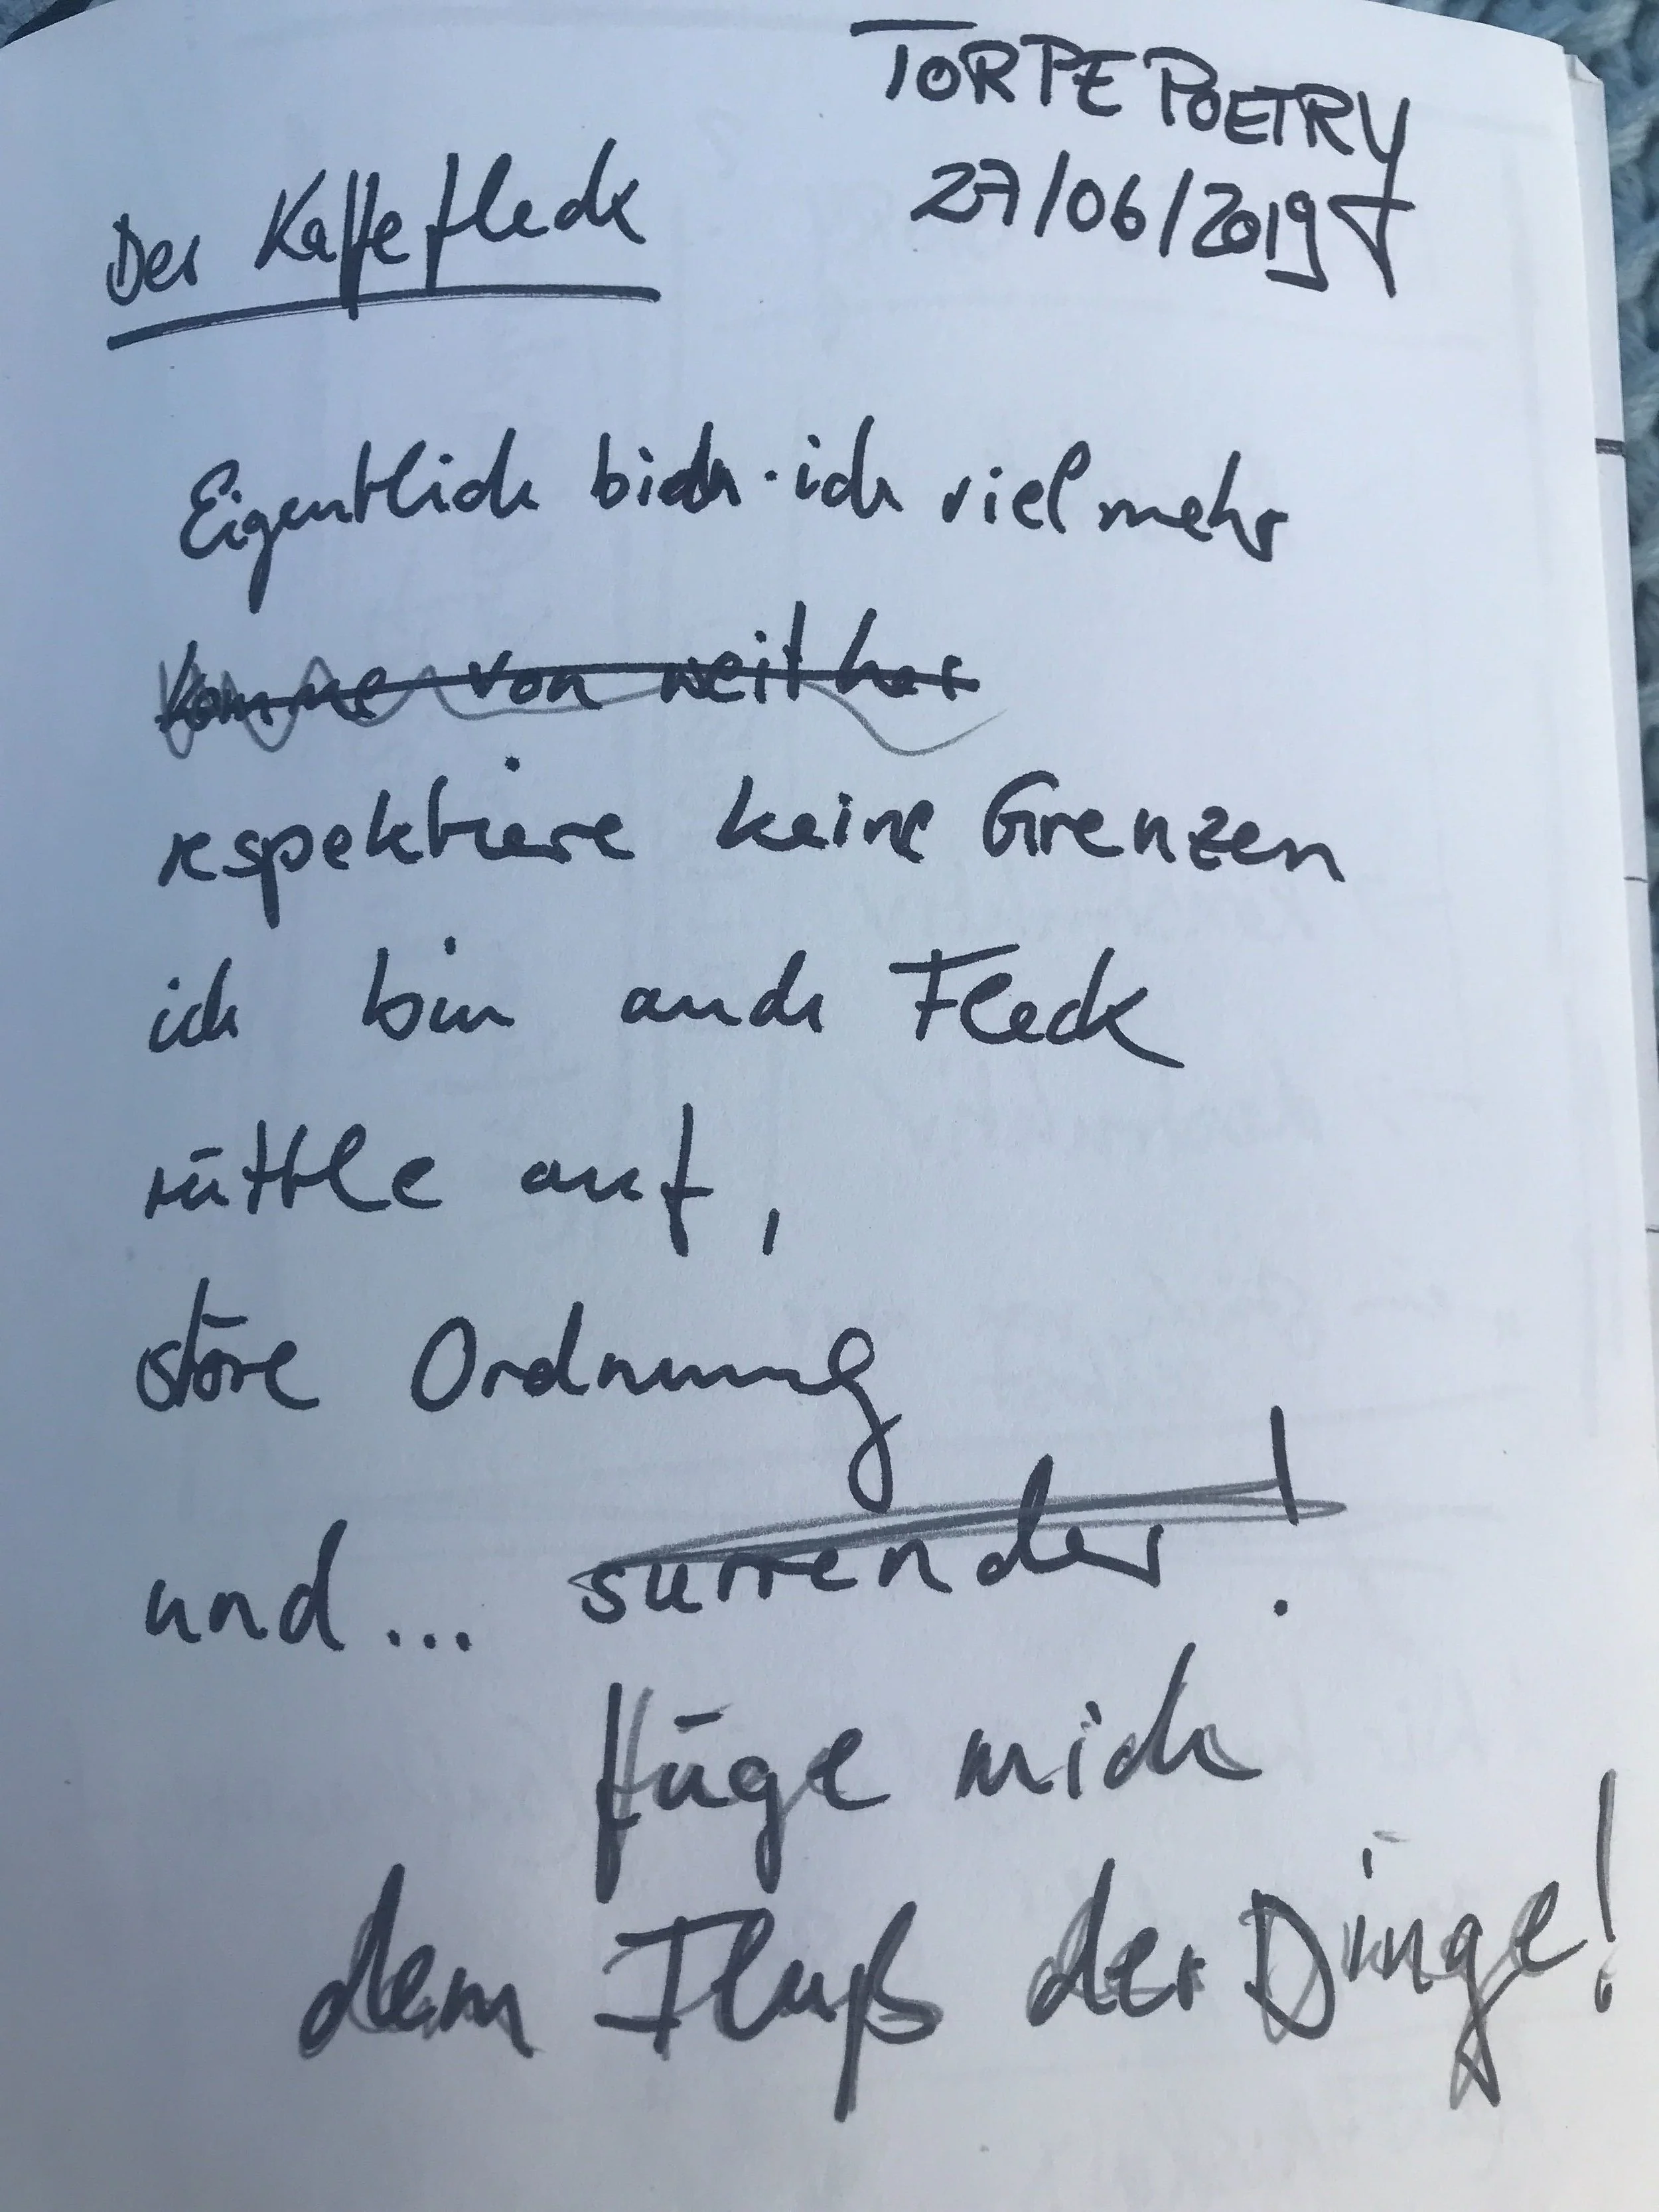 TORPE POETRY
27/06/2019
Der Kaffefleck
Eigentlich bich ich viel mehr
komme von weit her
respektiere keine Grenzen
ich bin auch Fleck
rüttle auf,
störe Ordnung
und... surrender!
füge mich
dem Fluß der Dinge!